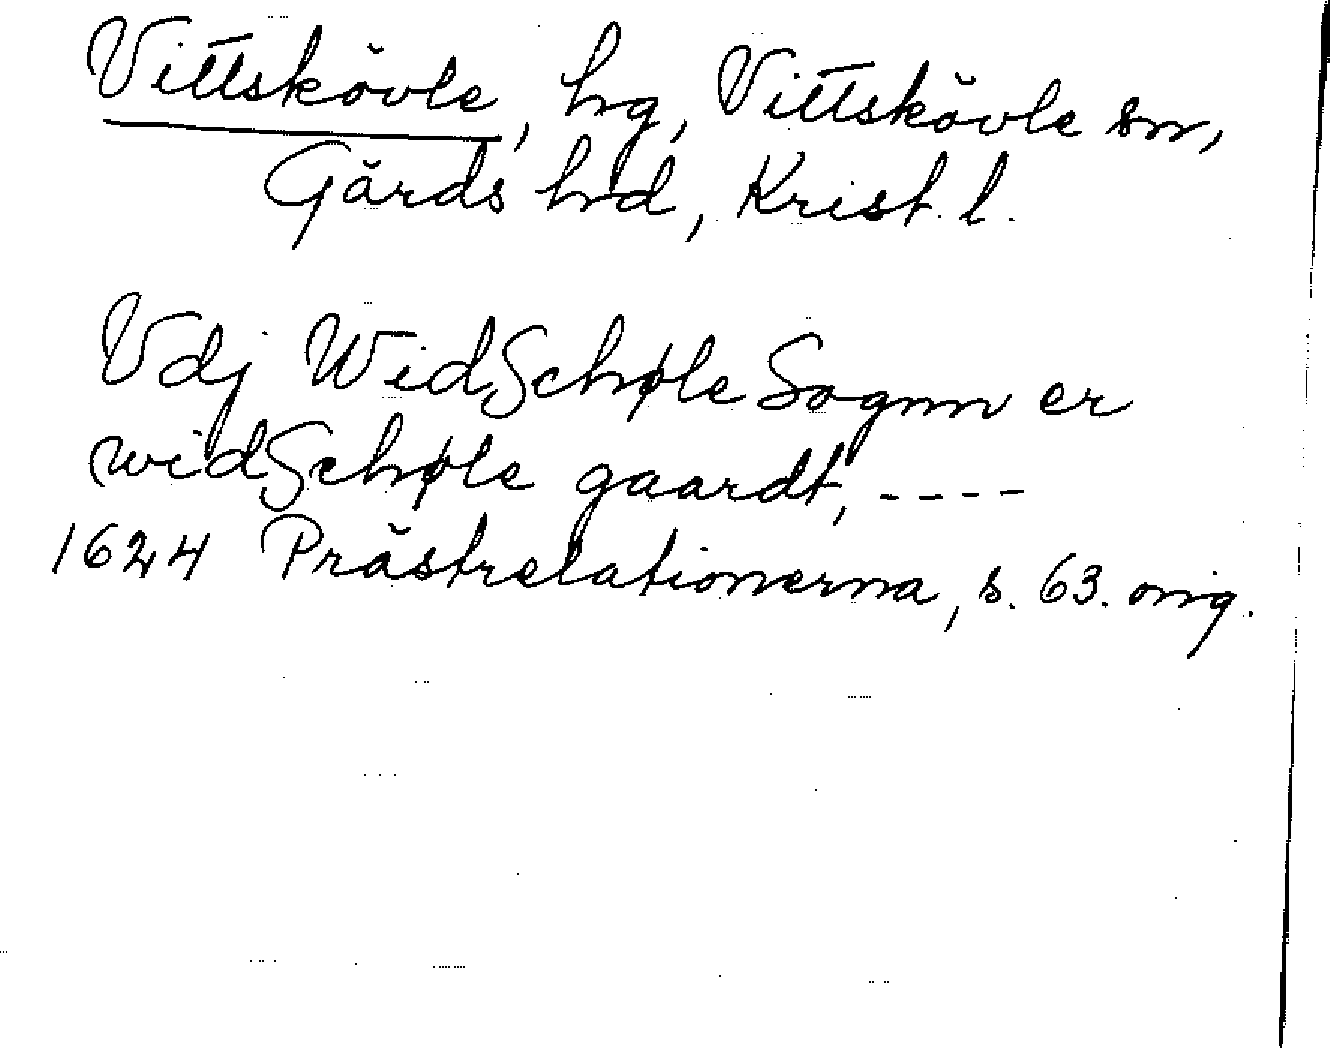 Vittskövle, hg, Vittskövle sn,
Gärds hd, Krist. l.
Vdj WidSchøle Sognn er
widSchøle gaardt, ----
1624 Prästrelationerna, s. 63. orig.